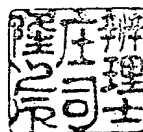 辨理士
庄司
隆之印